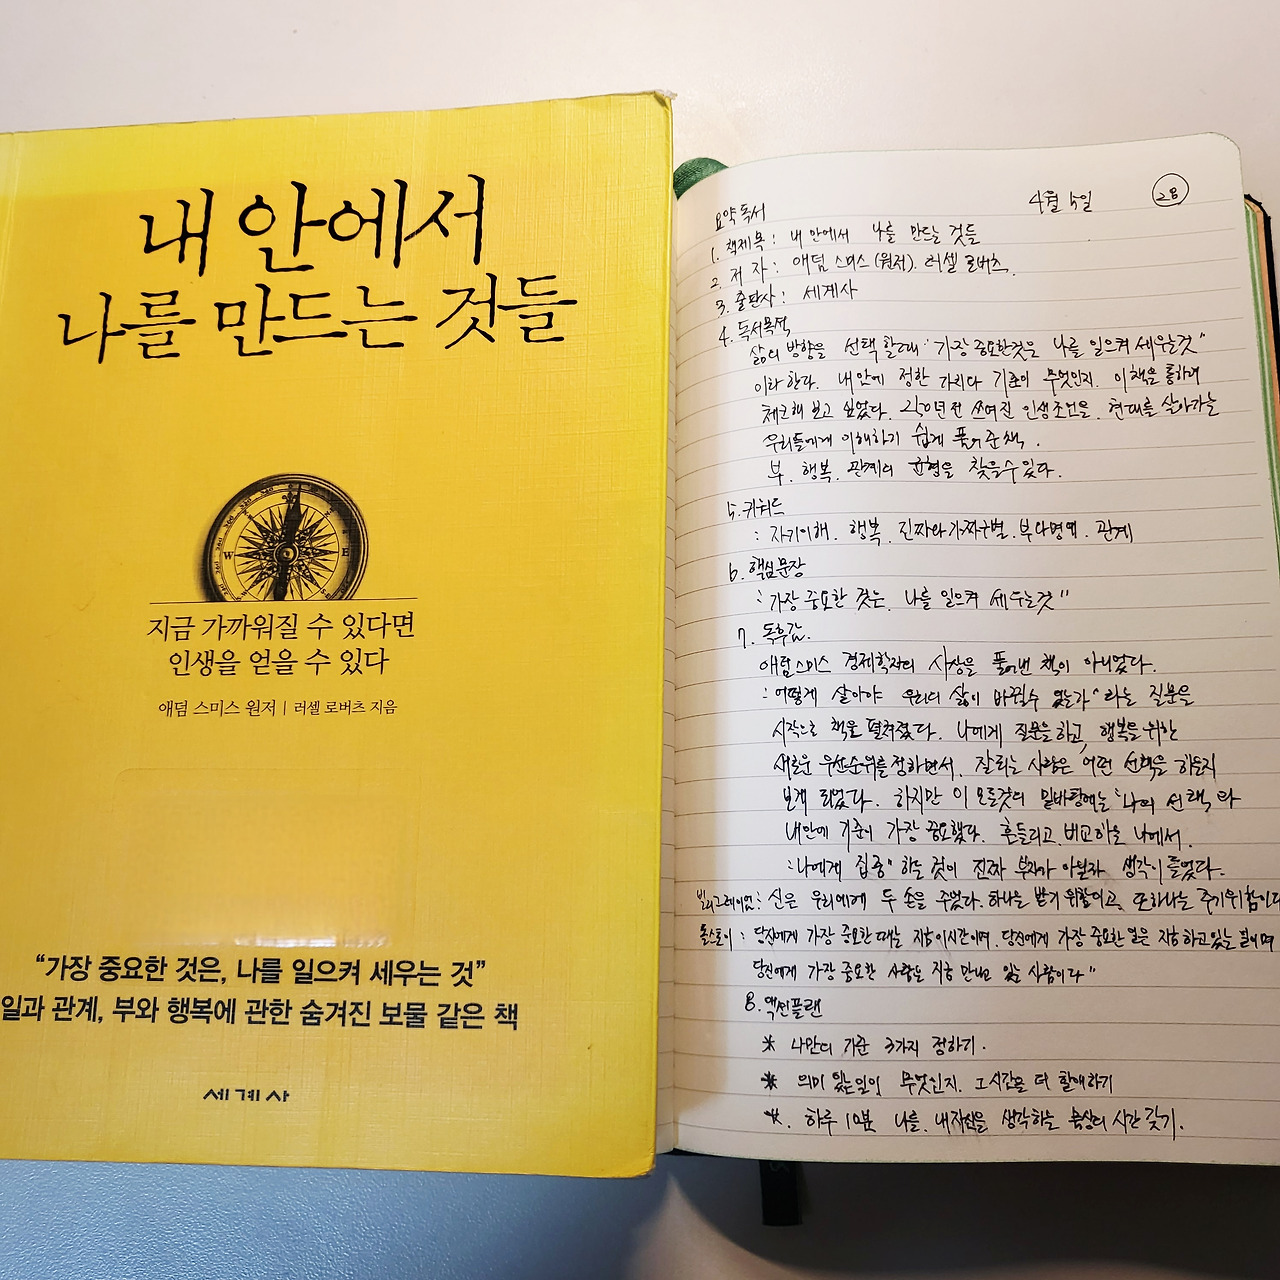 내 안에서
나를 만드는 것들
W
E
지금 가까워질 수 있다면
인생을 얻을 수 있다
애덤 스미스 원저 | 러셀 로버츠 지음
“가장 중요한 것은, 나를 일으켜 세우는 것”
일과 관계, 부와 행복에 관한 숨겨진 보물 같은 책
세계사
4월 5일 28
요약독서
1. 책제목 : 내 안에서 나를 만드는 것들
2. 저 자 : 애덤 스미스 (원저). 러셀 로버츠.
3. 출판사 : 세계사
4. 독서목적
삶의 방향을 선택할때 "가장 중요한것은 나를 일으켜 세우는것"
이라 한다. 내안에 정한 가치나 기준이 무엇인지. 이책을 통하여
체크해 보고 싶었다. 250년전 쓰여진 인생조언을. 현대를 살아가는
우리들에게 이해하기 쉽게 풀어준책.
부. 행복. 관계의 균형을 찾을수있다.
5. 키워드
: 자기이해. 행복. 진짜와가짜구별. 부다명예. 관계
6. 핵심문장
: "가장 중요한 것은. 나를 일으켜 세우는것"
7. 독후감.
애덤스미스 경제학자의 사상을 풀어낸 책이 아니었다.
: 어떻게 살아야 우리의 삶이 바뀔수 있는가" 라는 질문을
시작으로 책은 펼쳐졌다. 나에게 질문을하고, 행복을위한
새로운 우선순위를정하면서. 잘되는 사람은 어떤 선택을 하는지
보게 되었다. 하지만 이 모든것의 밑바탕에는 "나의 선택"과
내안에 기준이 가장 중요했다. 흔들리고, 비교하는 나에서.
: "나에게 집중" 하는 것이 진짜 부자가 아닐까 생각이 들었다.
빌리그레이엄 : 신은 우리에게 두 손을 주었다. 하나는 받기 위함이고, 또하나는 주기위함이다
톨스토이 : 당신에게 가장 중요한 때는 지금이시간이며. 당신에게 가장 중요한 일은 지금하고있는 일이며
당신에게 가장 중요한 사람은 지금 만나고 있는 사람이다"
8. 액션플랜
* 나만의 기준 3가지 정하기.
* 의미 있는일이 무엇인지. 그시간을 더 할애하기
*. 하루 10분 나를. 내자신을 생각하는 묵상의 시간 갖기.